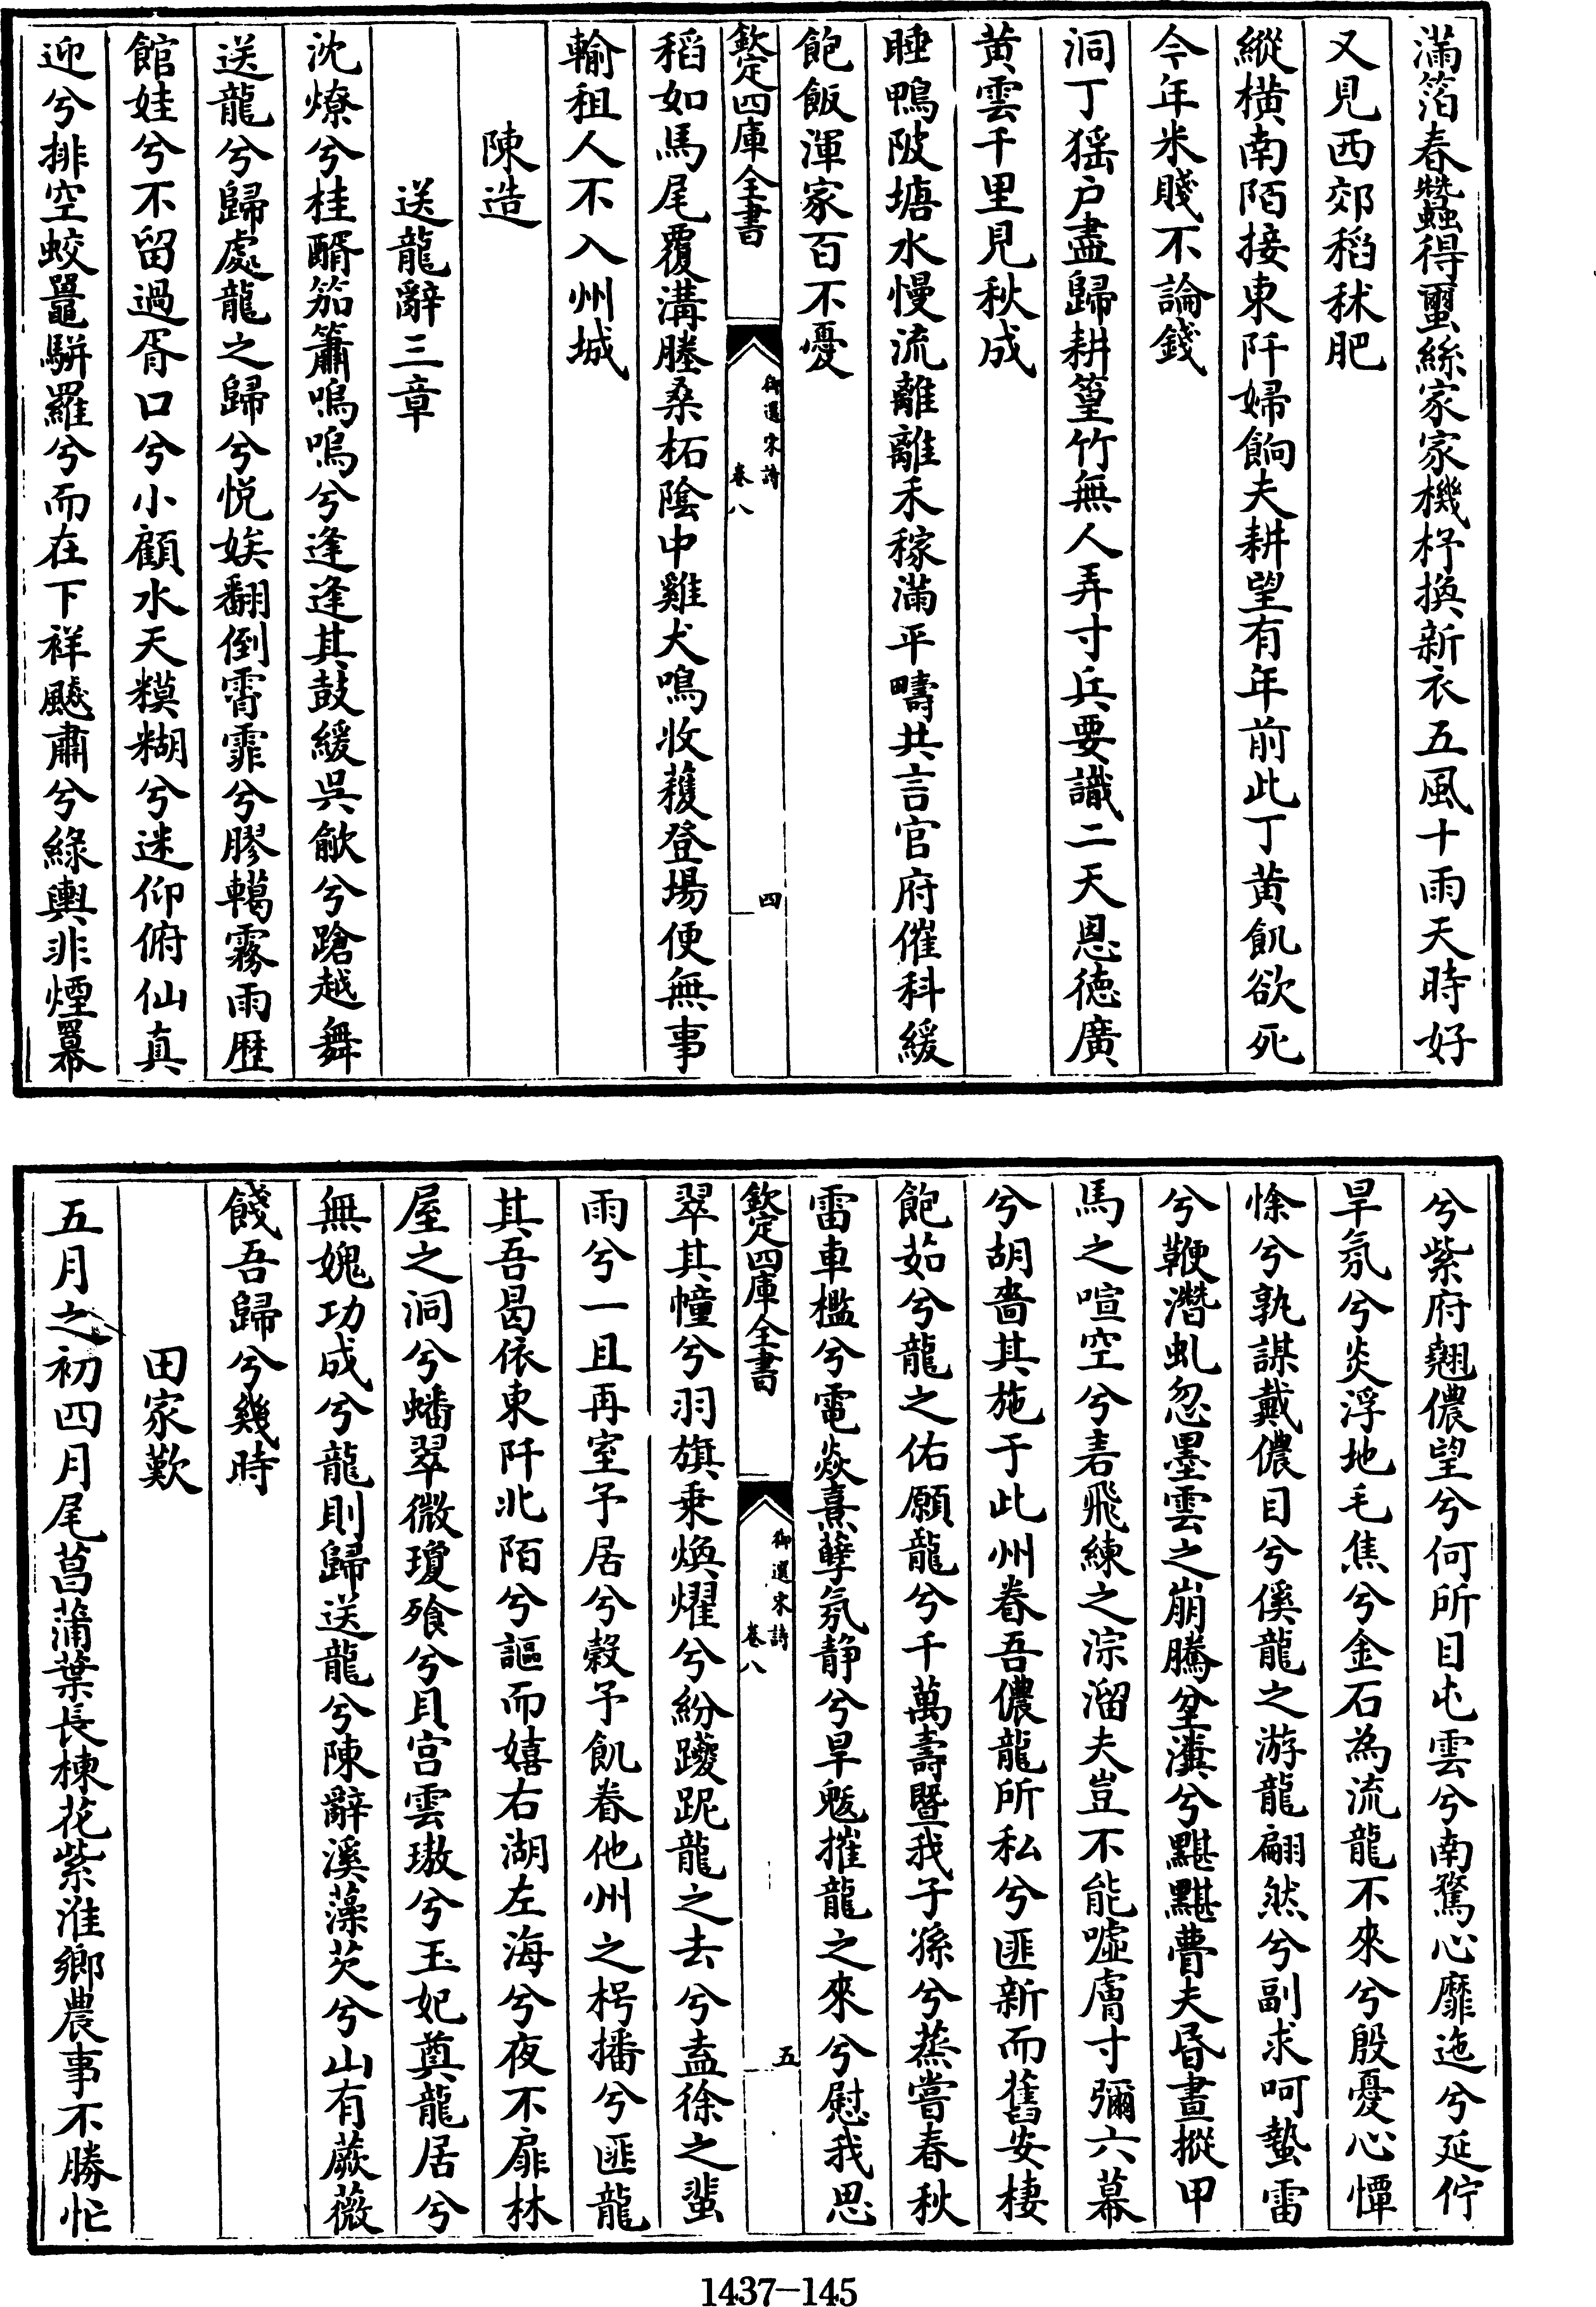 滿箔春蠶得蠒絲家家機杼換新衣五風十雨天時好
又見西郊稻秫肥
縱橫南陌接東阡婦餉夫耕望有年前此丁黃飢欲死
今年米賤不論錢
洞丁猺户盡歸耕篁竹無人弄寸兵要識二天恩德廣
黃雲千里見秋成
睡鴨陂塘水慢流離離禾稼滿平疇共言官府催科緩
飽飯渾家百不憂
欽定四庫全書
御選宋詩
卷八
四
稻如馬尾覆溝塍桑柘陰中雞犬鳴收蓛登場便無事
輸租人不入州城
陳造
送龍辭三章
沈燎兮桂醑笳簫嗚嗚兮逢逢其鼓緩吳歈兮蹌越舞
送龍兮歸處龍之歸兮悦娭翻倒霄霏兮膠轕霧雨歴
館娃兮不留過胥口兮小顧水天糢糊兮迷仰俯仙真
迎兮排空蛟鼉駢羅兮而在下祥飈肅兮綠輿非煙羃
兮紫府翹儂望兮何所目屯雲兮南騖心靡迤兮延佇
旱氛兮炎浮地毛焦兮金石為流龍不來兮殷憂心憚
悇兮孰謀戴儂目兮傒龍之游龍翩然兮副求呵蟄雷
兮鞭潛虬忽墨雲之崩騰坌瀵兮黮黮瞢夫昏晝摐甲
馬之喧空兮砉飛練之淙溜夫豈不能噓膚寸彌六幕
兮胡嗇其施于此州眷吾儂龍所私兮匪新而舊安棲
飽茹兮龍之佑願龍兮千萬壽曁我子孫兮蒸嘗春秋
雷車檻兮電焱熹孽氛静兮旱魃摧龍之來兮慰我思
欽定四庫全書
御選宋詩
卷八
五
翠其幢兮羽旗乘煥耀兮紛躨跜龍之去兮盍徐之蜚
雨兮一且再室予居兮穀予飢眷他州之枵播兮匪龍
其吾曷依東阡北陌兮謳而嬉右湖左海兮夜不扉林
屋之洞兮蟠翠微瓊飱兮貝宫雲璈兮玉妃奠龍居兮
無媿功成兮龍則歸送龍兮陳辭溪藻芡兮山有蕨薇
餞吾歸兮幾時
田家歎
五月之初四月尾菖蒲葉長楝花紫淮鄉農事不勝忙
1437-145